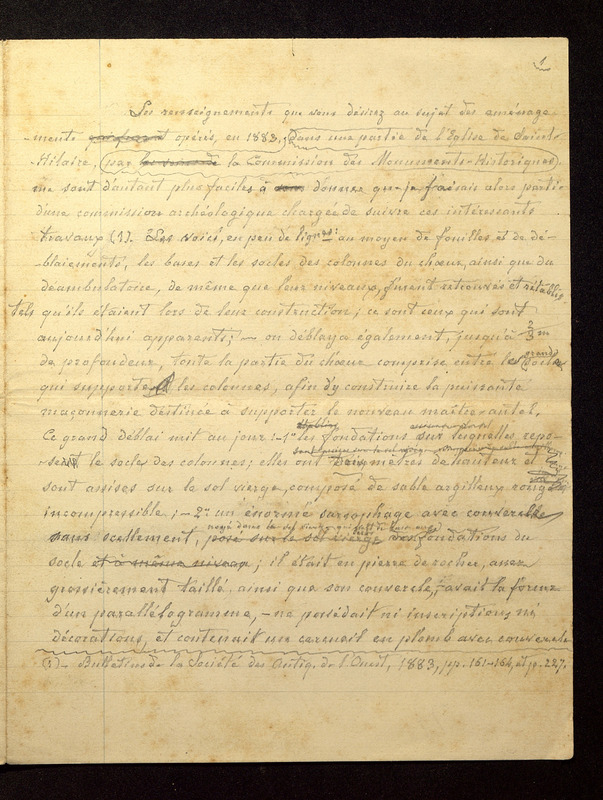 1
Les renseignements que vous désirez au sujet des aménage-
-ments opérés, en 1883, dans une partie de l'Eglise de Saint-
-Hilaire, (par la Commission des Monuments-Historiques)
me sont d'autant plus faciles à donner que je faisais alors partie
d'une commission archéologique chargée de suivre ces intéressants
travaux (1). Les voici, en peu de lignes: au moyen de fouilles et de dé-
-blaiements, les bases et les socles des colonnes du chœur, ainsi que du
déambulatoire, de même que leur niveaux, furent retrouvés et rétablis,
tels qu'ils étaient lors de leur construction; ce sont ceux qui sont
aujourd'hui apparents; — on déblaya également, jusqu'à 3 m
de profondeur, toute la partie du chœur comprise entre les grands socles
qui supportent les colonnes, afin d'y construire la puissante
maçonnerie destinée à supporter le nouveau maître-autel.
Ce grand déblai mit au jour: -1° les fondations sur lesquelles repo-
-sent le socle des colonnes; elles ont deux mètres de hauteur et
sont assises sur le sol vierge, composé de sable argilleux rouge
incompressible; -2° un énorme sarcophage avec couvercle
sans scellement, posé sur le sol vierge des fondations du
socle et à même niveau; il était en pierre de rocher, assez
grossièrement taillé, ainsi que son couvercle, avait la forme
d'un parallélogramme, - ne possédait ni inscriptions, ni
décorations, et contenait un cercueil en plomb avec couvercle
(1) - Bulletins de la Société des Antiq. de l'Ouest, 1883, pp. 161-164, et p. 227.